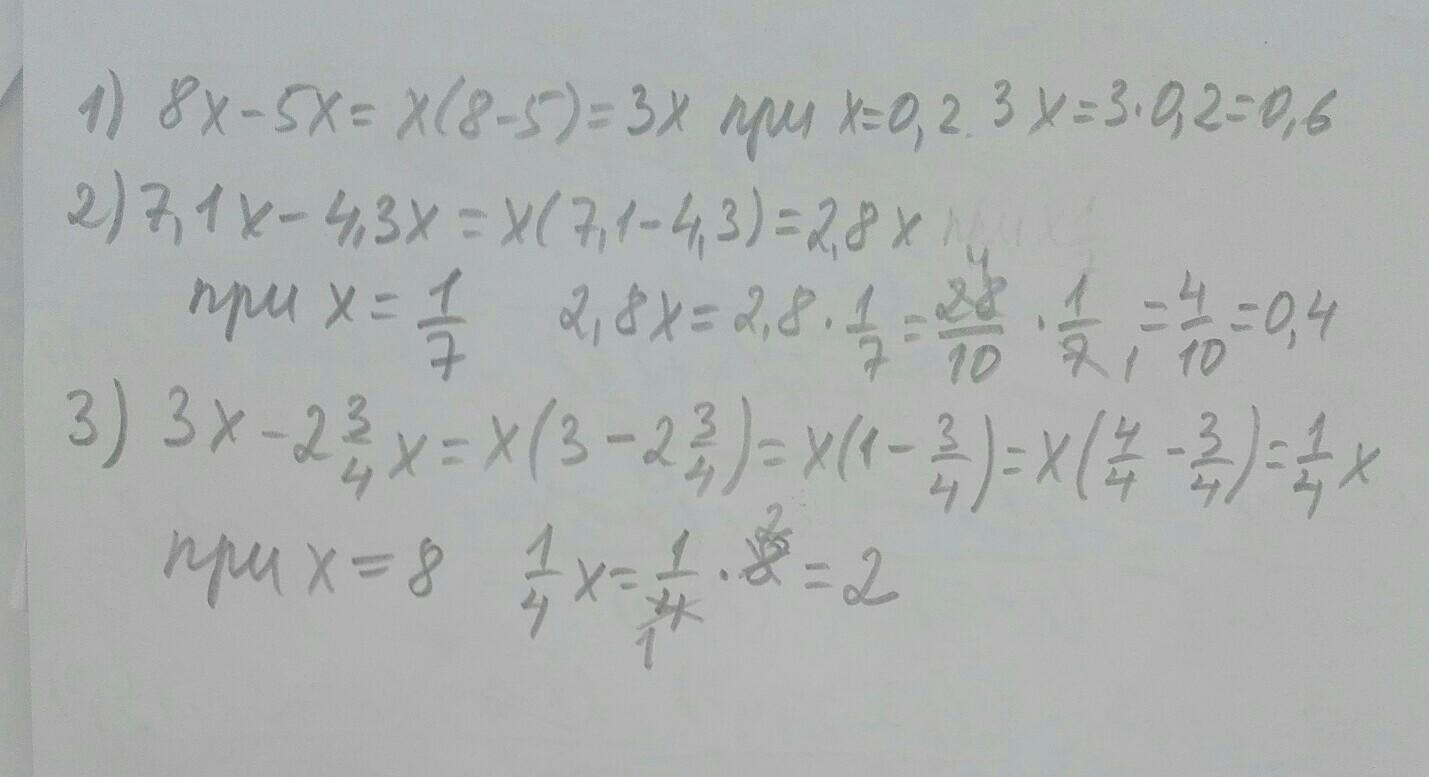 1) 8x-5x= x(8-5)=3x при x=0,2. 3x=3·0,2=0,6
2) 7,1x-4,3x=x(7,1-4,3)=2,8x при x
при x=1/7 2,8x=2,8·1/7=28/10 4·1/7 1=4/10=0,4
3) 3x-2 3/4x=x(3-2 3/4)=x(1-3/4)=x(4/4-3/4)=1/4x
при x=8 1/4x=1/4 1·8 2=2